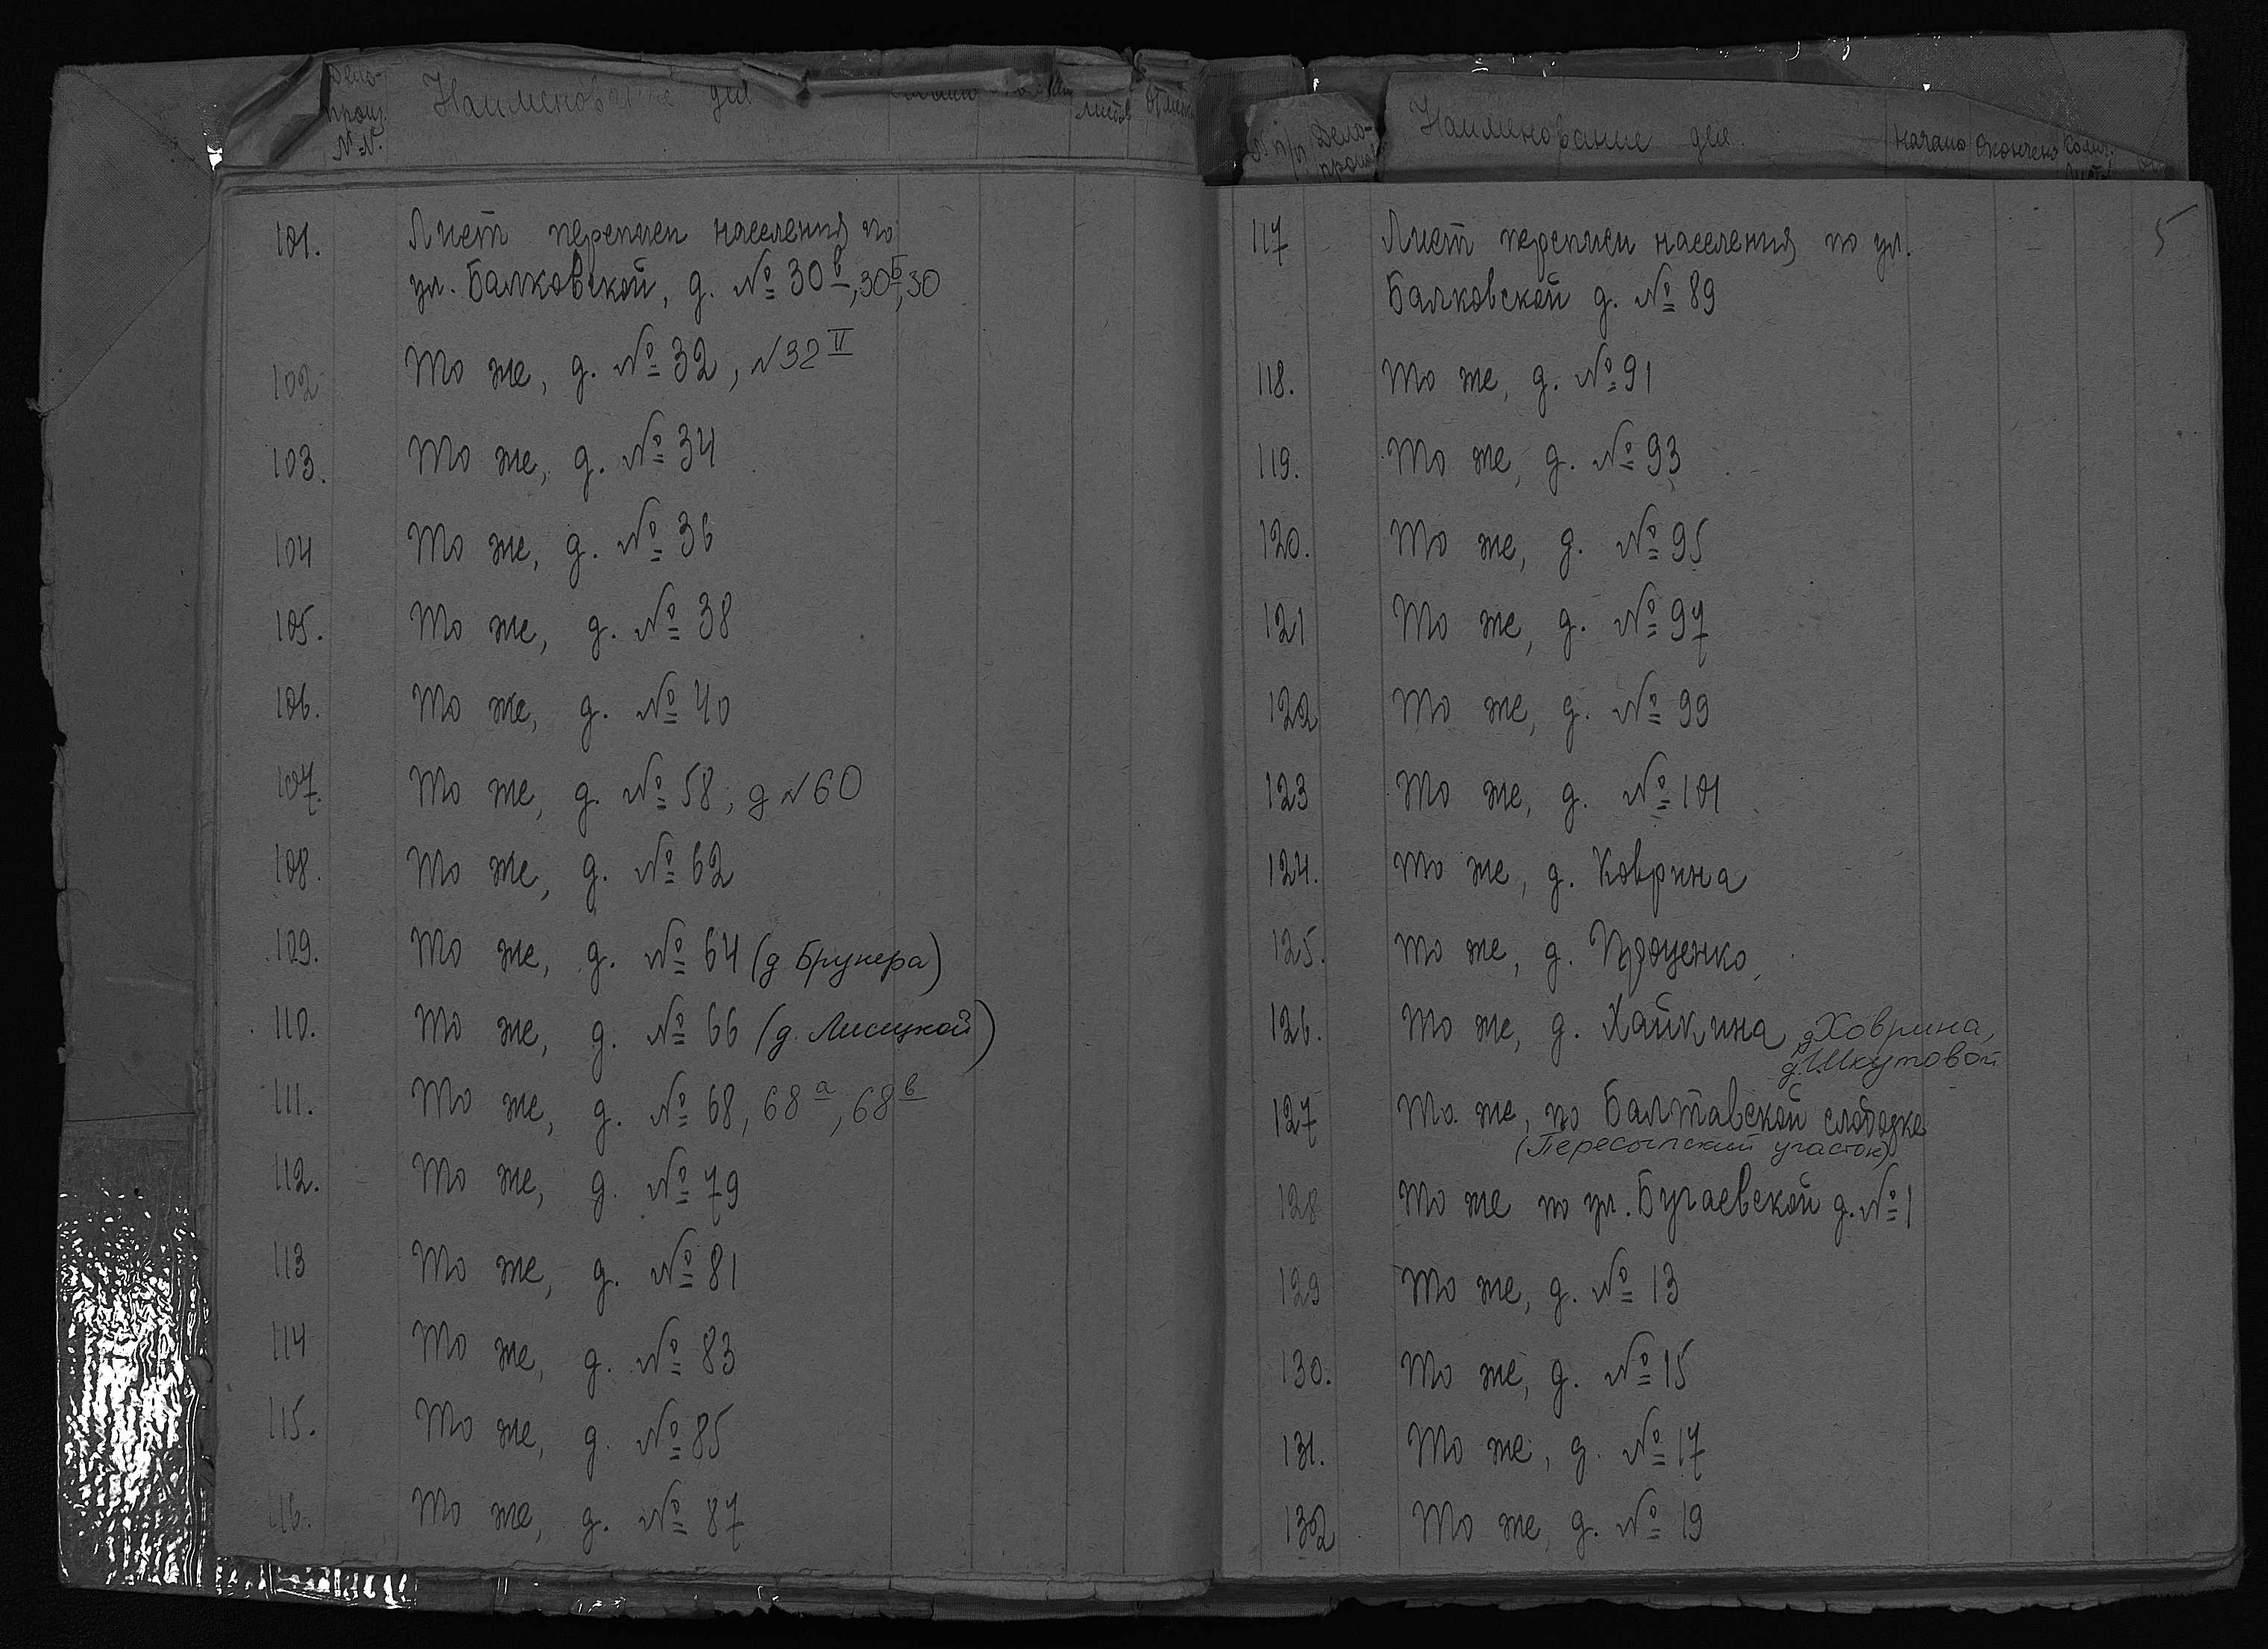 Дело-
произ.
№№
Наименование дел
листов
101. Лист переписи населения по
ул. Балковской, д. № 30в, 30Б, 30
102 То же, д. № 32, №32 II
103. То же, д. № 34
104 То же, д. № 36
105. То же, д. № 38
106. То же, д. № 40
107. То же, д. № 58, д №60
108. То же, д. № 62
109. То же, д. № 64 (д. Брунера)
110. То же, д. № 66 (д. Лисицкой)
111. То же, д. № 68, 68а, 68в
112. То же, д. № 79
113 То же, д. № 81
114 То же, д. № 83
115. То же, д. № 85
116. То же, д. № 87
№ п/п Дело-
произ
Наименование дел.
Начало Окончено Колич.
5
117 Лист переписи населения по ул.
Балковской д. № 89
118. То же, д. № 91
119. То же, д. № 93
120. То же, д. № 95
121 То же, д. № 97
122 То же, д. № 99
123 То же, д. № 101
124. То же, д. Коврина
125. То же, д. Проценко
126. То же, д. Хайкина, д. Ховрина,
д. Шкутовой
127 То же, по Балтавской слободке
(Пересыпский участок)
128 То же по ул. Бугаевской д. № 1
129 То же, д. № 13
130. То же, д. № 15
131. То же, д. № 17
132 То же, д. № 19